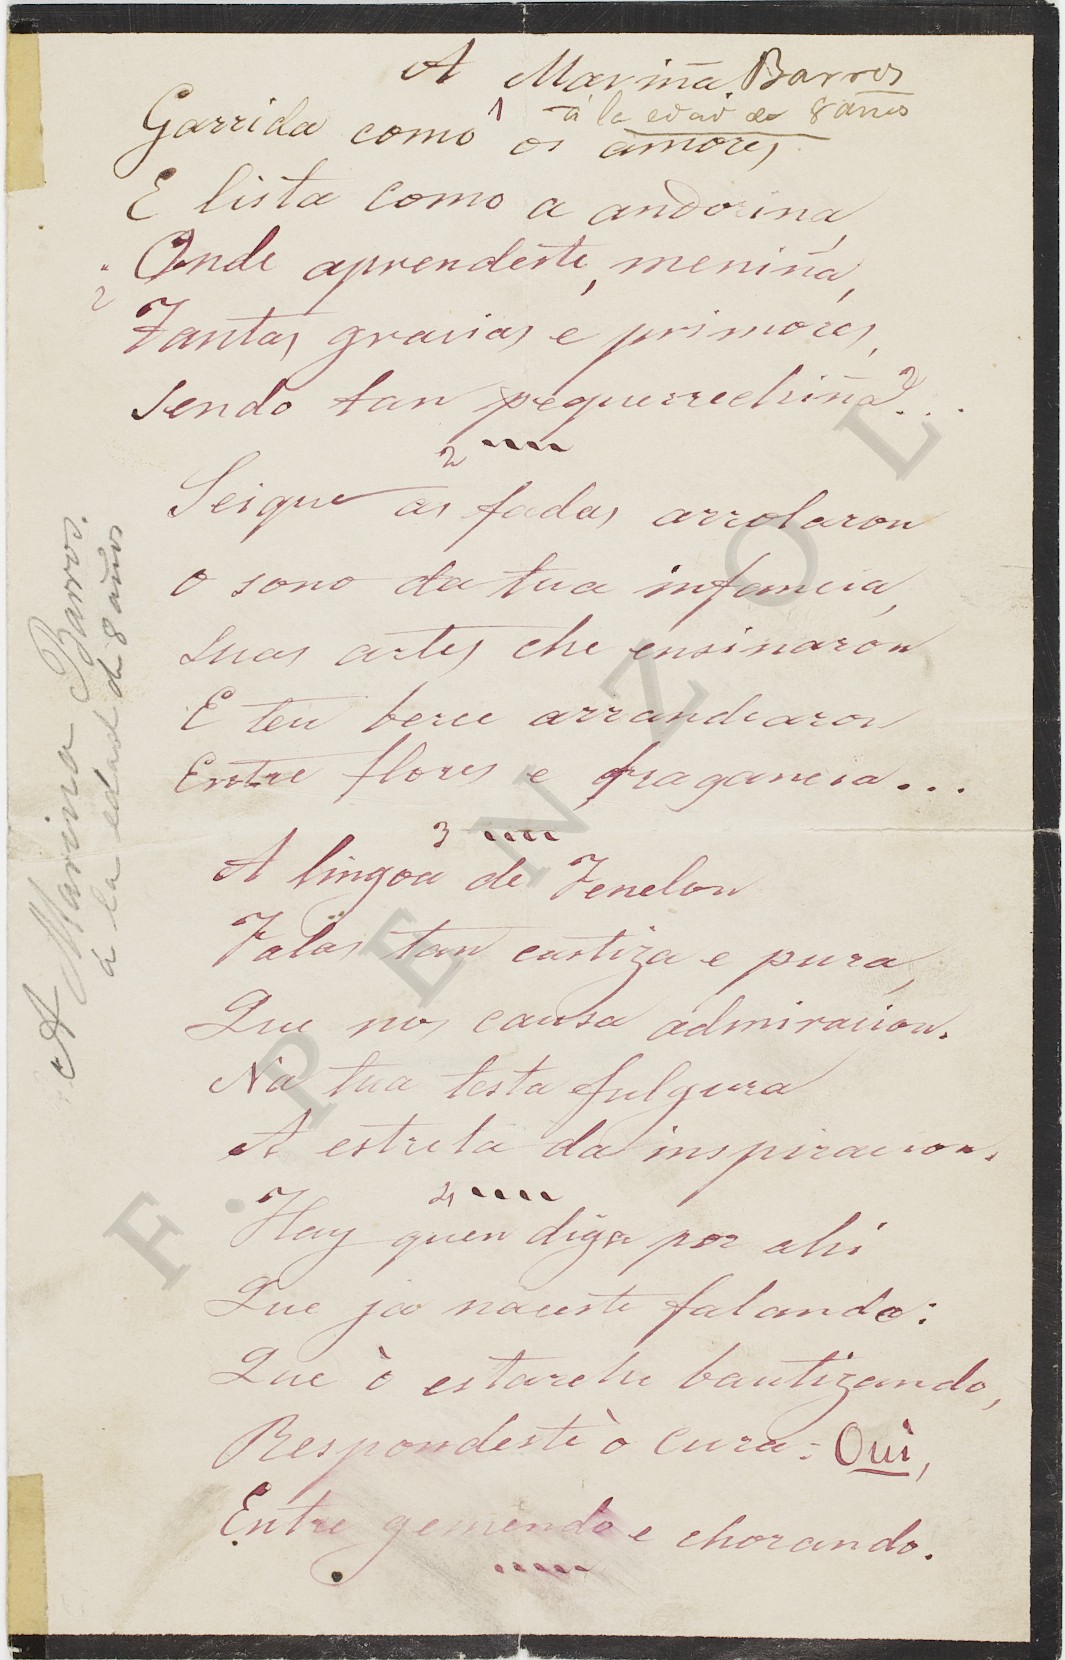 A Mariña Barros
á la edad de 8 años
1
Garrida como os amores,
E lista como a andorina,
Onde aprendeste, meniña,
Tantas gracias e primores,
Sendo tan pequerrechiña?...
2
Seique as fadas arrolaron
O sono da tua infancia,
Suas artes che ensinaron
E teu berce arrandearon
Entre flores e fragancia...
3
A lingoa de Fenelon
Falas tan castiza e pura,
Que nos causa admiracion.
Na tua testa fulgura
A estrela da inspiracion.
4
Hay quen diga por ahi
Que ja naceste falando:
Que ò estarche bautizando,
Respondeste ò cura: Oui,
Entre gemendo e chorando.
A Marina Barros.
á la edad de 8 años
F. PENZOL